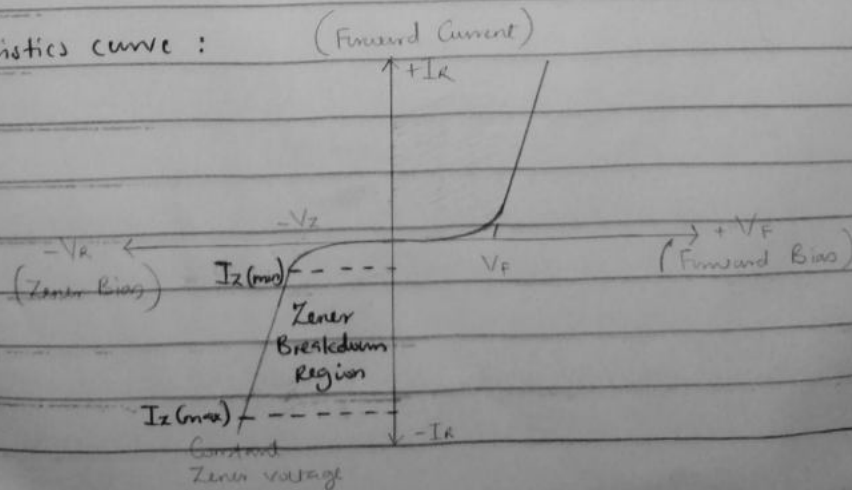 istics curve :
(Forward Current)
+IR
-VZ
-VR
+ VF
(Zener Bias)
VF
(Forward Bias)
IZ(min)
Zener
Breakdown
Region
IZ(max)
-IR
Constant
Zener voltage